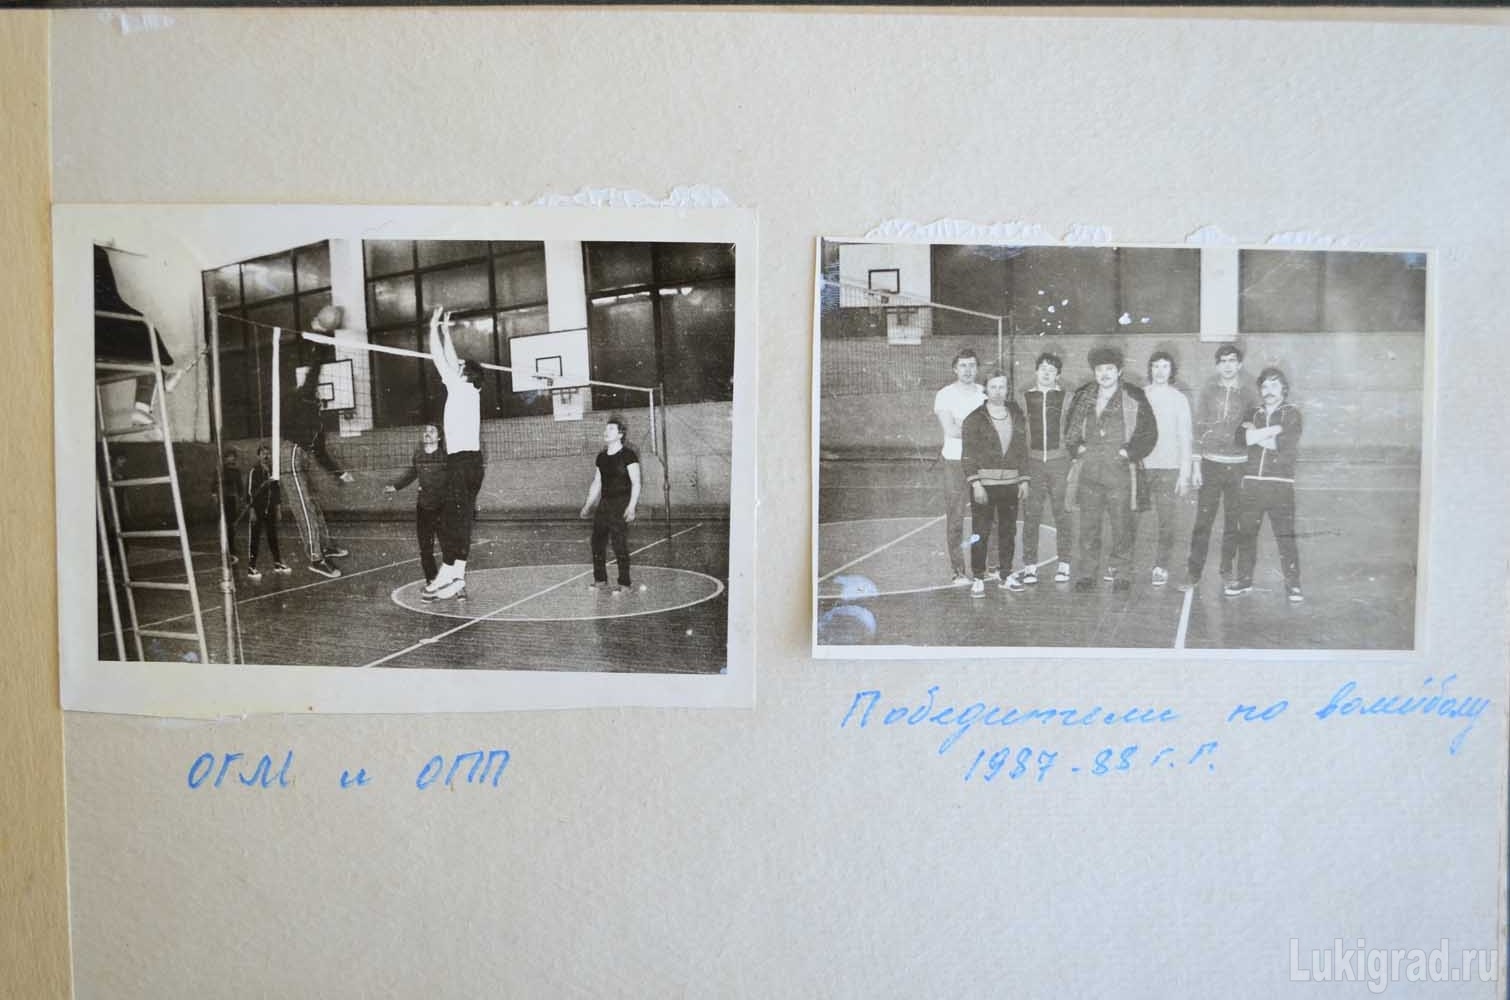 ОГМ и ОПП
Победители по волейболу
1987-88 г.г.
Lukigrad.ru